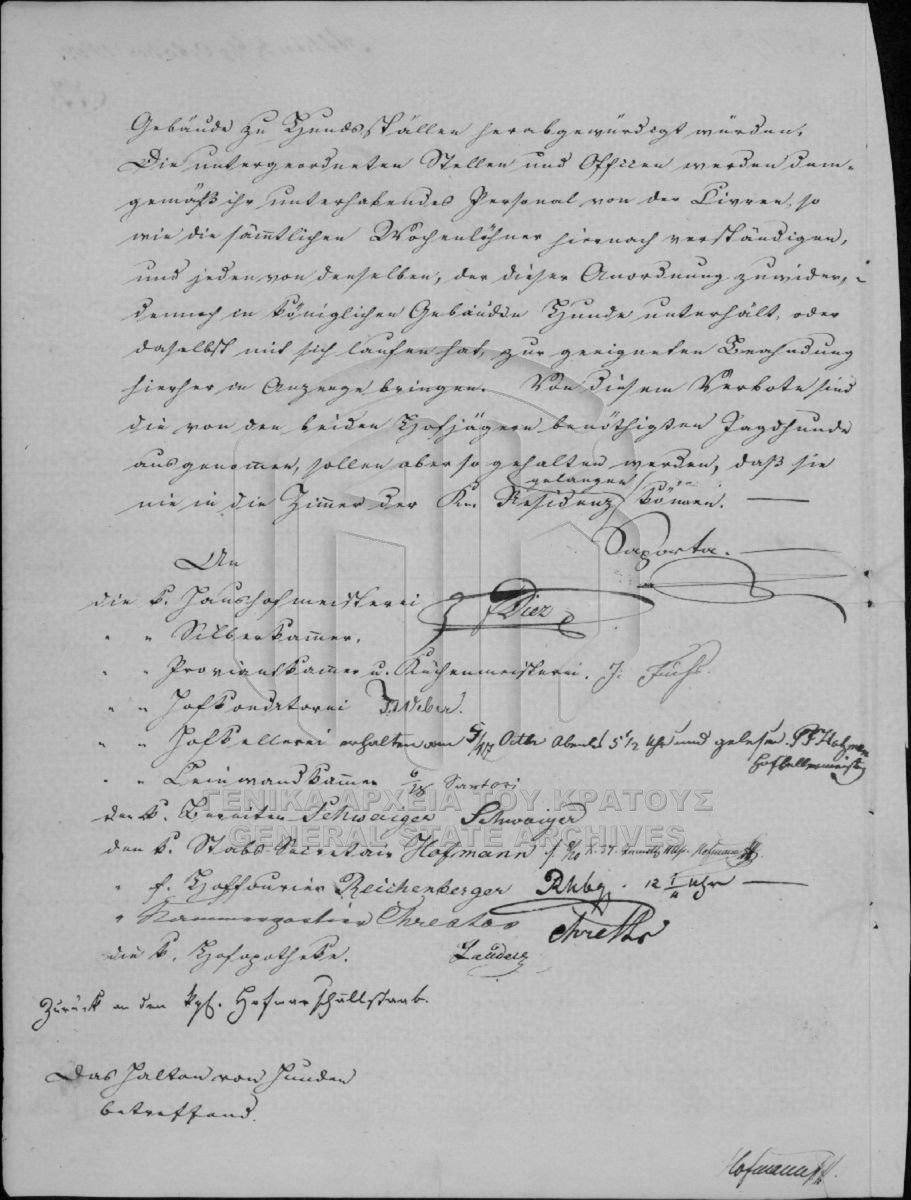 Gebäude zu Hundsställen herabgewürdigt würden.
Die untergeordneten Stellen und Officen werden dem-
gemäß ihr unterhabendes Personal von der Livree, so
wie die sämtlichen Wochenlöhner hiernach verständigen,
und jeden von denselben, der dieser Anordnung zuwider,
dennoch in königlichen Gebäuden Hunde unterhält, oder
daselbst mit sich laufen hat, zur geeigneten Beahndung
hierher in Anzeige bringen. Von diesem Verbote sind
die von den beiden Hofjägern benöthigten Jagdhunde
ausgenommen, sollen aber so gehalten werden, daß sie
nie in die Zimmer der Kn. Residenz gelangen können.
Saporta.
An
die k. Haushofmeisterei Diez
" " Silberkammer.
" " Proviantkammer u. Küchenmeisterei. J. Fuchs.
" " Hofkonditorei Weber.
" " Hofkellerei erhalten am 5/17 Octbr Abends 5 1/2 Uhr und gelesen.
Hofkellermeister
" " Leinwandkammer 6/18 Sartori
ΓΕΝΙΚΑ ΑΡΧΕΙΑ ΤΟΥ ΚΡΑΤΟΥΣ
GENERAL STATE ARCHIVES
den k. Bereiter Schwaiger Schwaiger
den k. Stabs Secretair Hofmann Hofmann
" f. Hoffourier Reichenberger Rhbg. 12 1/4 Uhr
" Kammerportier
die k. Hofapotheke.
Zurück an den kgl. Hofmarschallstaab.
Das Halten von Hunden
betreffend.
Hofmann